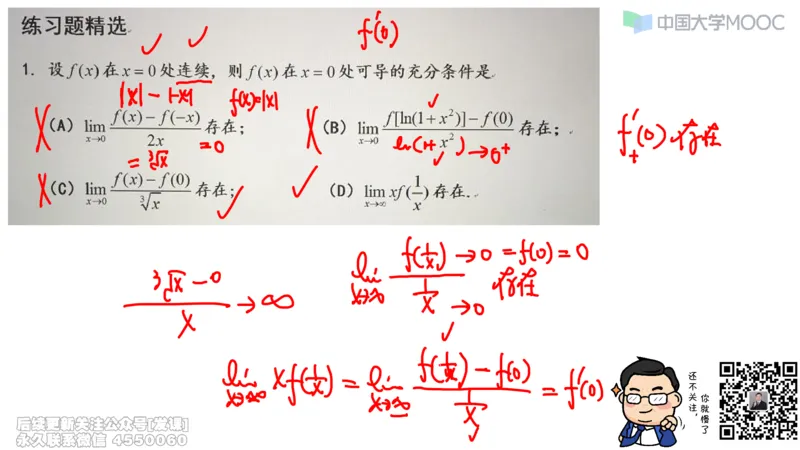 练习题精选
f'(0)
中国大学MOOC
1. 设 f(x) 在 x = 0 处连续，则 f(x) 在 x = 0 处可导的充分条件是
|x| - |-x| f(x)=|x|
(A) lim x→0 f(x) − f(−x) / 2x 存在； =0
(B) lim x→0 f[ln(1+x²)] − f(0) / x² 存在；
ln(1+x²) →0⁺
f'₊(0) 存在
= ∛x
(C) lim x→0 f(x) − f(0) / ∛x 存在；
(D) lim x→∞ xf(1/x) 存在.
∛x − 0 / x → ∞
lim x→∞ f(1/x) / 1/x →0 = f(0) = 0 存在
→0
lim x→∞ xf(1/x) = lim x→∞ f(1/x) − f(0) / 1/x = f'(0)
还不关注，
你就慢了
后续更新关注公众号[发课]
永久联系微信 4550060